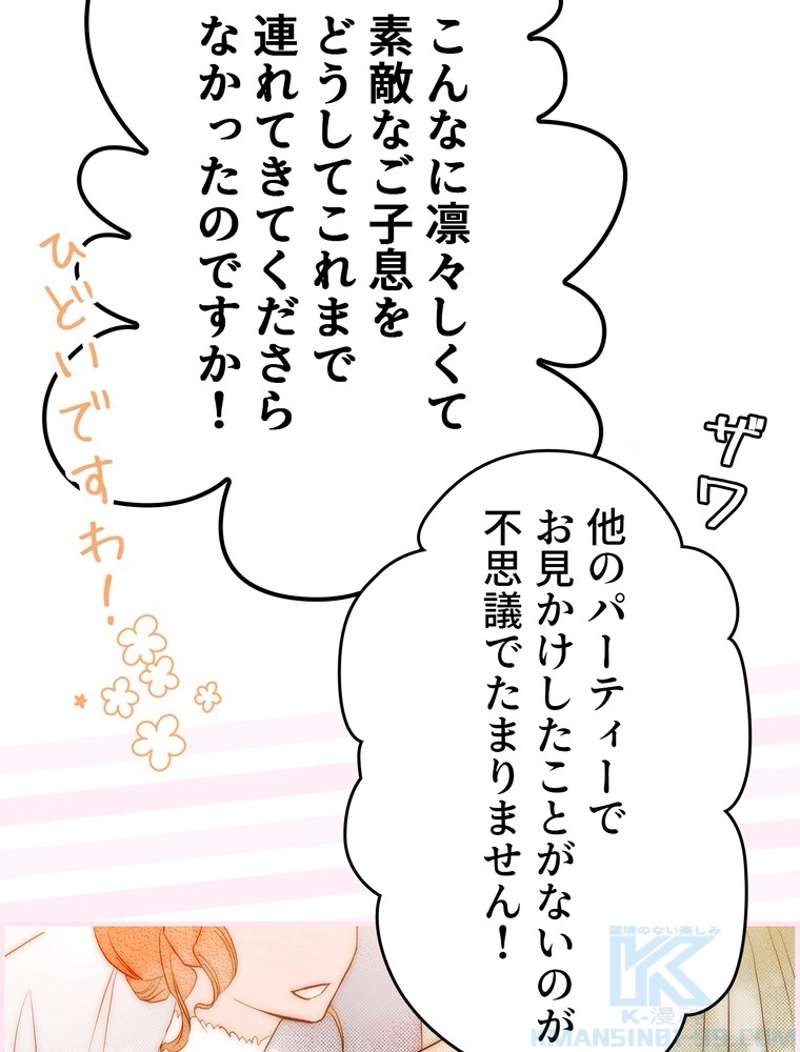 こんなに凛々しくて
素敵なご子息を
どうしてこれまで
連れてきてくださら
なかったのですか！
ひどいですわ！
ザワ
他のパーティーで
お見かけしたことがないのが
不思議でたまりません！
K-漫画